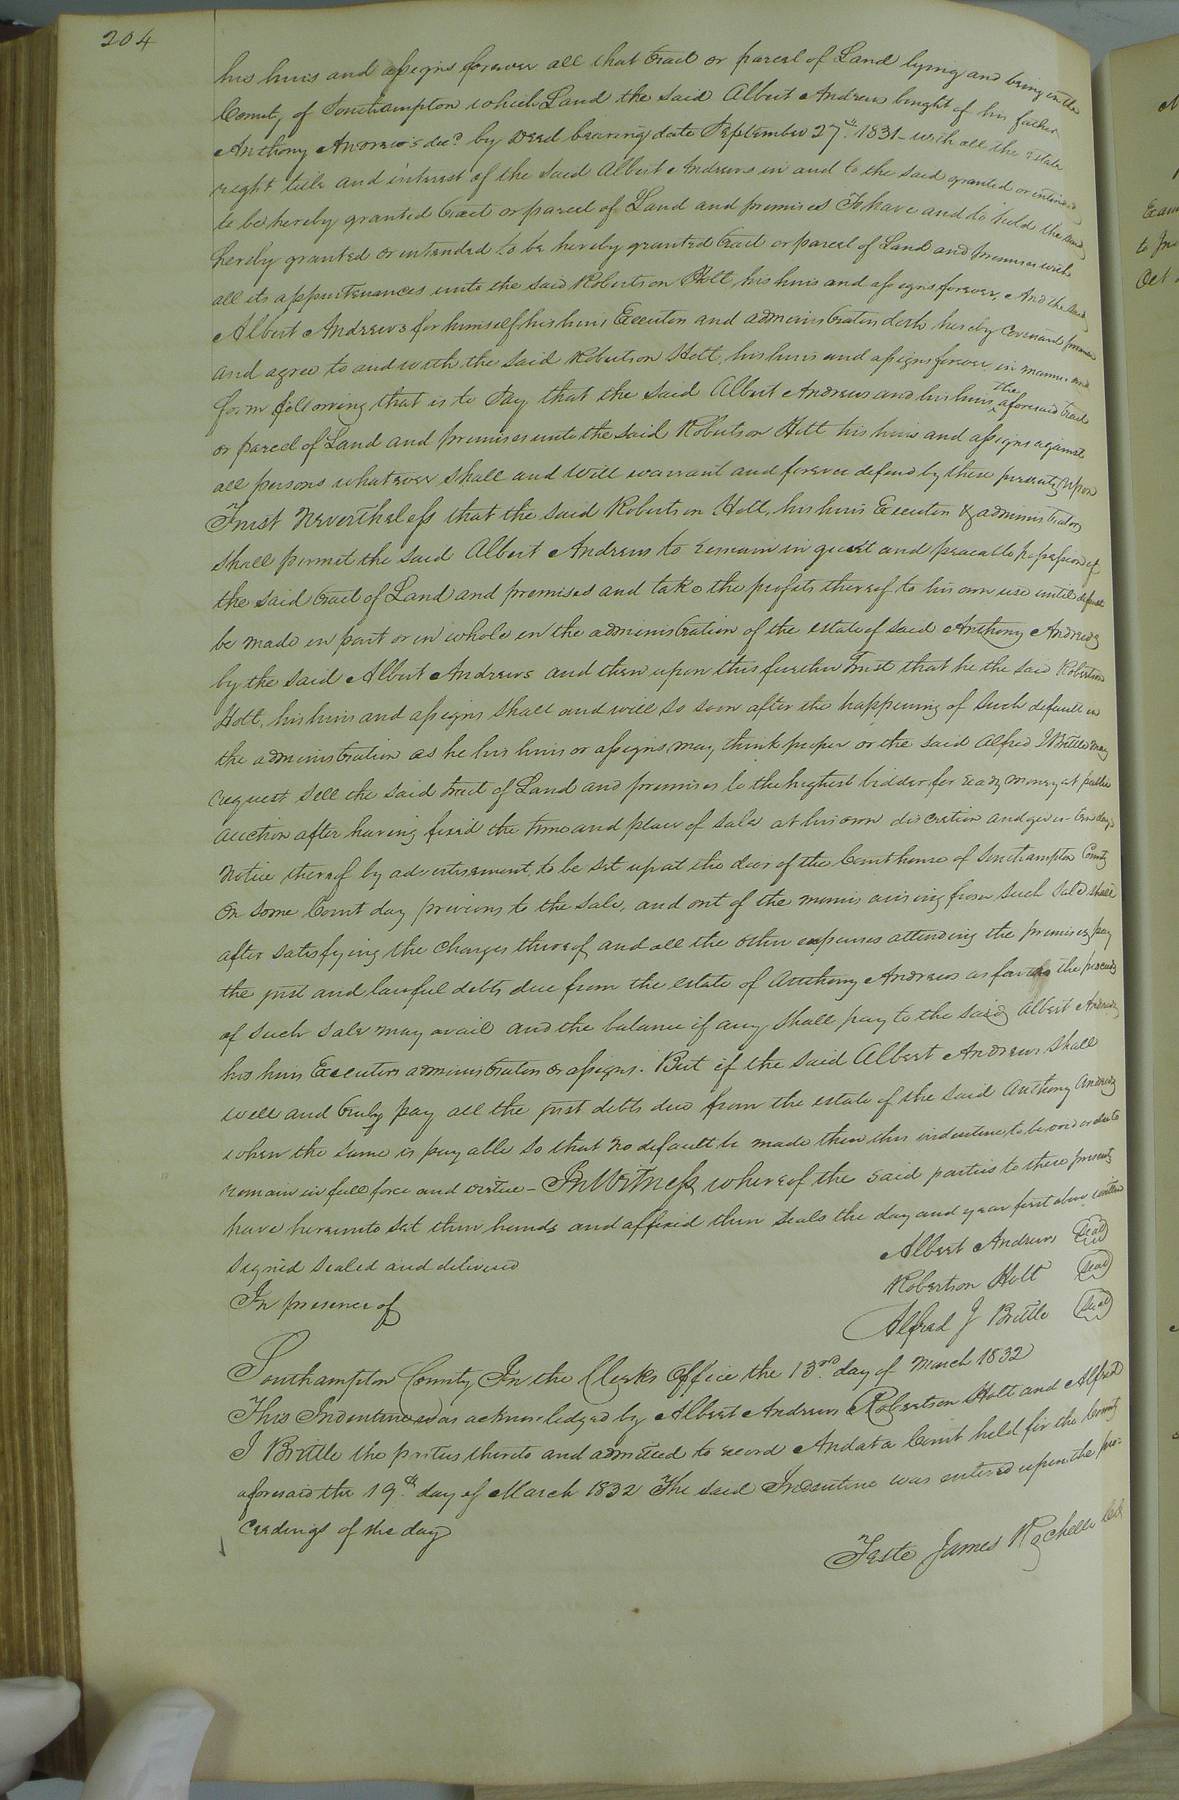 204
his heirs and assigns forever all that tract or parcel of Land lying and being in the
County of Southampton which Land the said Albert Andrews bought of his father
Anthony Andrews decd by Deed bearing date September 27th 1831 - with all the estate
right title and interest of the said Albert Andrews in and to the said granted or intended
to be hereby granted tract or parcel of Land and premises To have and to hold the said
hereby granted or intended to be hereby granted tract or parcel of Land and premises with
all its appurtenances unto the said Robertson Holt, his heirs and assigns forever, And the said
Albert Andrews for himself his heirs Executors and administrators doth hereby Covenant promise
and agree to and with the said Robertson Holt, his heirs and assigns forever in manner and
form following that is to say, that the said Albert Andrews and his heirs the aforesaid tract
or parcel of Land and premises unto the said Robertson Holt his heirs and assigns against
all persons whatever shall and will warrant and forever defend by these presents, Upon
Trust Nevertheless that the said Robertson Holt, his heirs Executors & administrators
shall permit the said Albert Andrews to remain in quiet and peaceable possession of
the said tract of Land and premises and take the profits thereof to his own use until default
be made in part or in whole in the administration of the estate of said Anthony Andrews
by the said Albert Andrews and then upon this further Trust that he the said Robertson
Holt, his heirs and assigns shall and will so soon after the happening of such default in
the administration as he his heirs or assigns may think proper or the said Alfred J Brittle may
request sell the said tract of Land and premises to the highest bidder for ready money at public
auction after having fixed the time and place of sale at his own discretion and given ten days
Notice thereof by advertisement, to be set up at the door of the Court house of Southampton County
On some Court day previous to the sale, and out of the monies arising from such sale shall
after satisfying the charges thereof and all the other expenses attending the premises, pay
the just and lawful debts due from the estate of Anthony Andrews as far as the proceeds
of such sale may avail and the balance if any shall pay to the said Albert Andrews
his heirs Executors administrators or assigns. But if the said Albert Andrews shall
well and truly pay all the just debts due from the estate of the said Anthony Andrews
when the same is payable so that no default be made then this indenture to be void or else to
remain in full force and virtue - In Witness whereof the said parties to these presents
have hereunto set their hands and affixed their seals the day and year first above written
Signed Sealed and delivered
In presence of
Albert Andrews Seal
Robertson Holt Seal
Alfred J Brittle Seal
Southampton County, In the Clerks Office the 13rd day of March 1832
This Indenture was acknowledged by Albert Andrews Robertson Holt and Alfred
J Brittle the parties thereto and admitted to record And at a Court held for the County
aforesaid the 19th day of March 1832 The said Indenture was entered upon the pro-
ceedings of the day
Teste James Rochelle